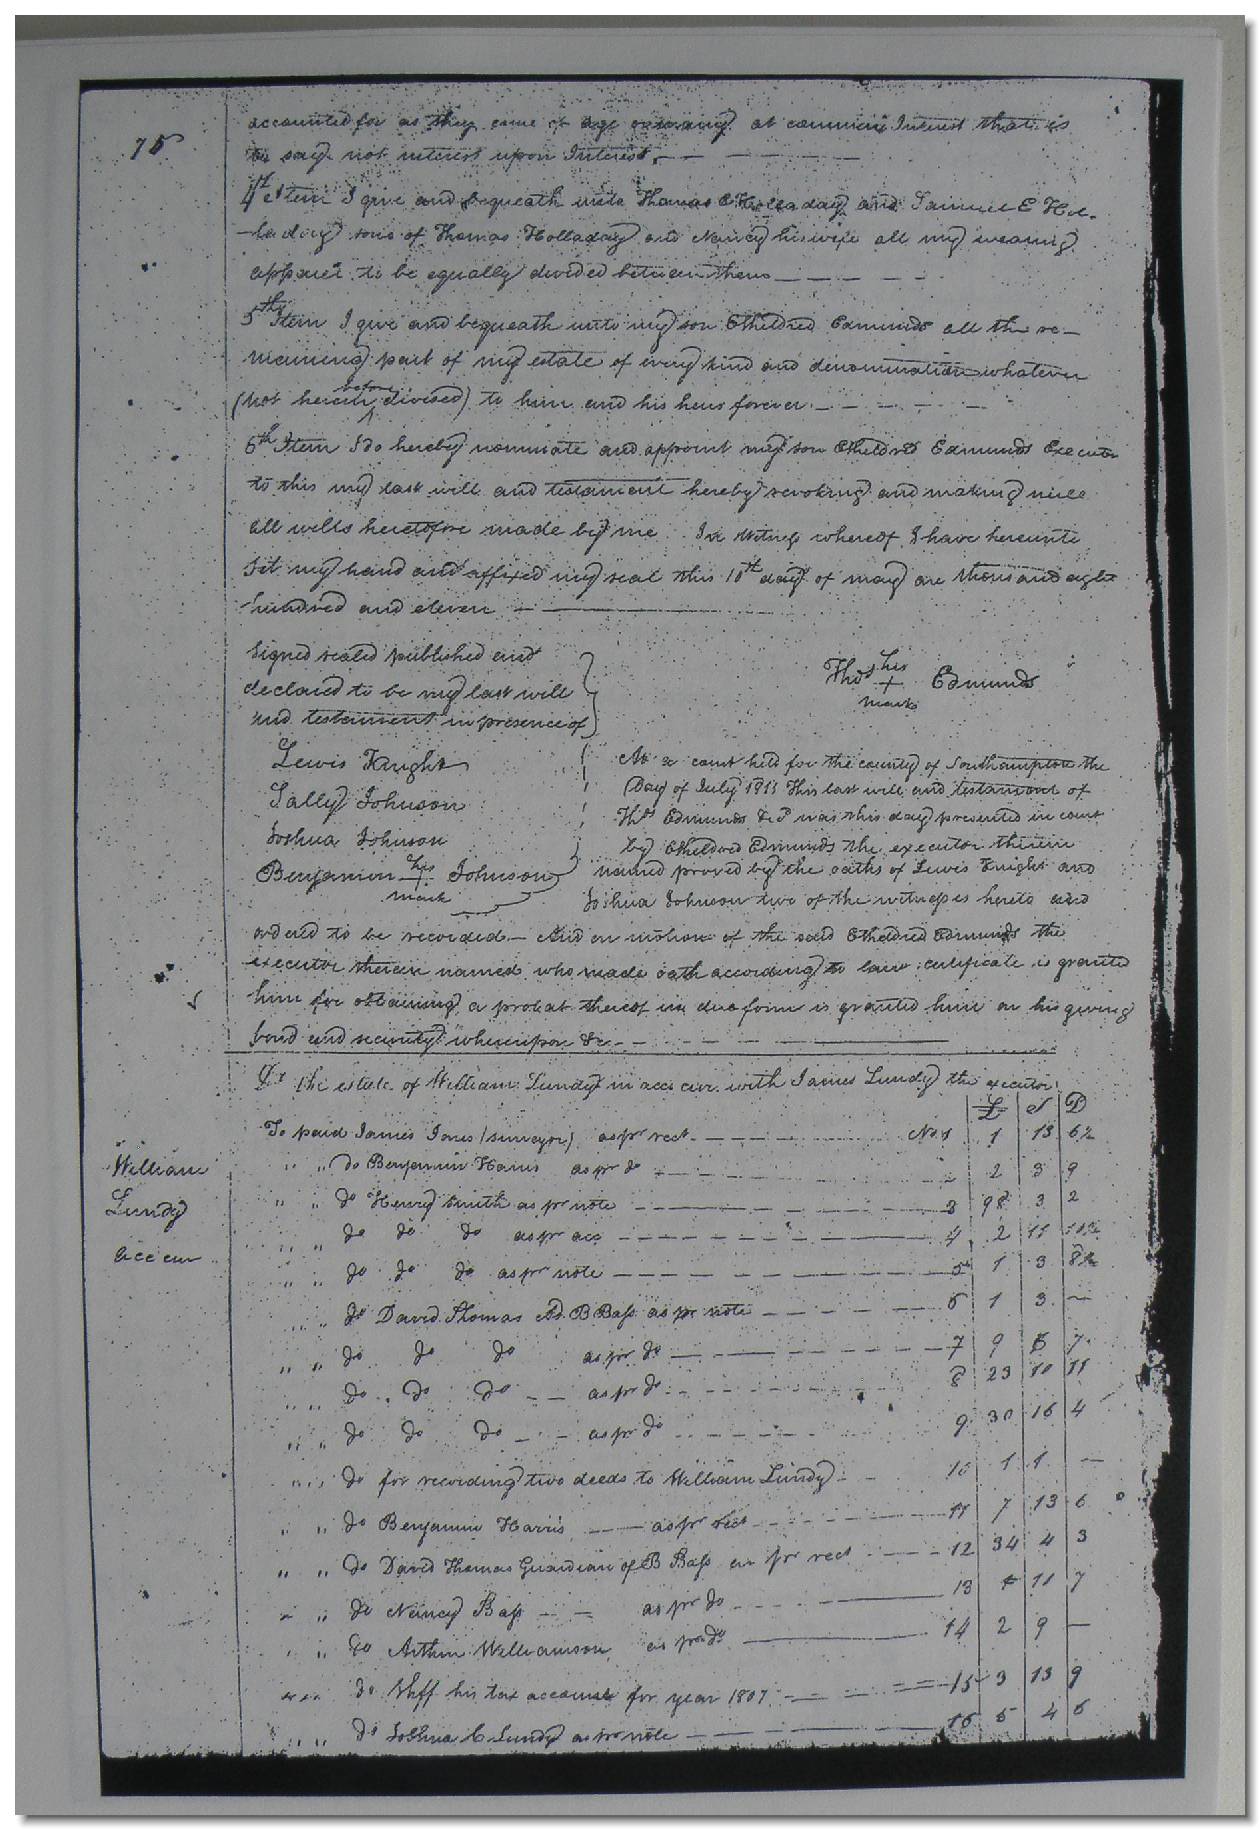 75
accounted for as they come of age at common Interest that is
to say not interest upon Interest.
4th Item I give and bequeath unto Thomas Holladay and Samuel E Hol-
-laday sons of Thomas Holladay and Nancy his wife all my wearing
apparel to be equally divided between them
5th Item I give and bequeath unto my son Etheldred Edmunds all the re-
maining part of my estate of every kind and denomination whatever
(not herein before divised) to him and his heirs forever
6th Item I do hereby nominate and appoint my son Etheldred Edmunds Executor
to this my last will and testament hereby revoking and making null
all wills heretofore made by me In Witness whereof I have hereunto
set my hand and affixed my seal this 10th day of may one thousand eight
hundred and eleven
Signed sealed published and
declared to be my last will
and testament in presence of
Thos his + mark Edmunds
Lewis Knight
Sally Johnson
Joshua Johnson
Benjamin his + mark Johnson
At a court held for the county of Southampton the
Day of July 1811 This last will and testament of
Thos Edmunds was this day presented in court
by Etheldred Edmunds the executor therein
named proved by the oaths of Lewis Knight and
Joshua Johnson two of the witnesses hereto and
ordered to be recorded - And on motion of the said Etheldred Edmunds the
executor therein named who made oath according to law certificate is granted
him for obtaining a probat thereof in due form is granted him on his giving
bond and security whereupon &c
William
Lundy
acc cur
Dr the estate of William Lundy in acc cur with James Lundy the executor
£ S D
To paid James Jones (surveyor) as pr rect No 1 1 13 6½
" " do Benjamin Harris as pr do 2 2 3 9
" " do Henry Smith as pr note 3 98 3 2
" " do do do as pr acc 4 2 11
" " do do do as pr note 5 1 3 8½
" " do David Thomas B. Bass as pr note 6 1 3 —
" " do do do as pr do 7 9 5 7
" " do do do as pr do 8 23 10 11
" " do do do as pr do 9 30 16 4
" " do for recording two deeds to William Lundy 10 1 1 —
" " do Benjamin Harris as pr rect 11 7 13 6
" " do David Thomas Guardian of B Bass pr rect 12 34 4 3
" " do Nancy Bass as pr do 13 11 7
" " do Arthur Williamson as pr do 14 2 9 —
" " do Shff his tax account for year 1807 15 3 13 9
" " do Joshua C Lundy as pr note 16 5 4 6